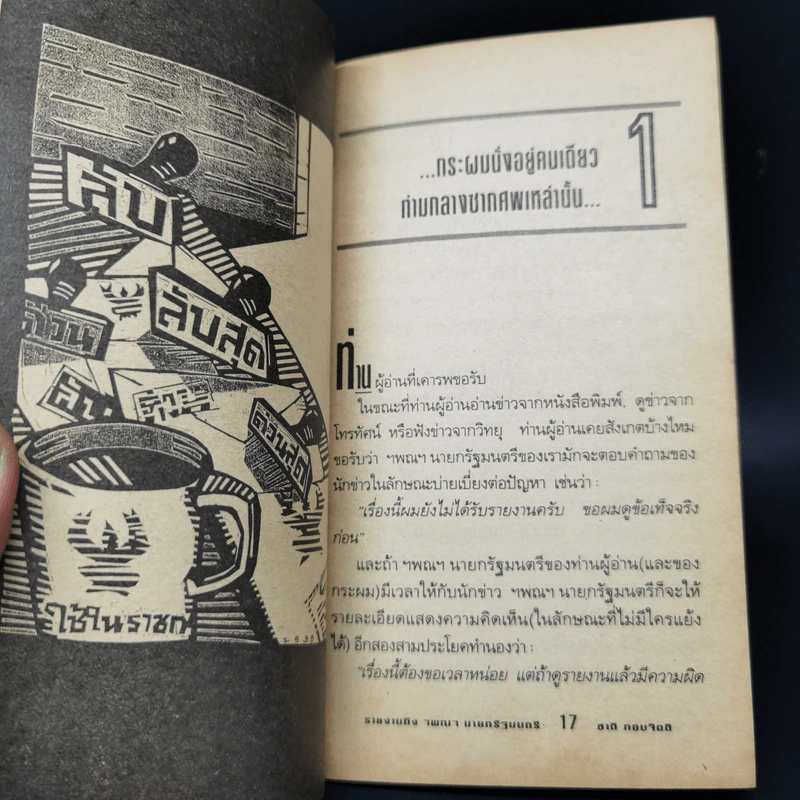 ลับ
ด่วน
ลับสุด
ลับ
ด่วน
ด่วนสุด
ใช้ในราชก
2533
1
...กระผมนั่งอยู่คนเดียว
ท่ามกลางซากศพเหล่านั้น...
ท่าน ผู้อ่านที่เคารพขอรับ
ในขณะที่ท่านผู้อ่านอ่านข่าวจากหนังสือพิมพ์, ดูข่าวจาก
โทรทัศน์ หรือฟังข่าวจากวิทยุ ท่านผู้อ่านเคยสังเกตบ้างไหม
ขอรับว่า ฯพณฯ นายกรัฐมนตรีของเรามักจะตอบคำถามของ
นักข่าวในลักษณะบ่ายเบี่ยงต่อปัญหา เช่นว่า :
"เรื่องนี้ผมยังไม่ได้รับรายงานครับ ขอผมดูข้อเท็จจริง
ก่อน"
และถ้า ฯพณฯ นายกรัฐมนตรีของท่านผู้อ่าน(และของ
กระผม)มีเวลาให้กับนักข่าว ฯพณฯ นายกรัฐมนตรีก็จะให้
รายละเอียดแสดงความคิดเห็น(ในลักษณะที่ไม่มีใครแย้ง
ได้) อีกสองสามประโยคทำนองว่า :
"เรื่องนี้ต้องขอเวลาหน่อย แต่ถ้าดูรายงานแล้วมีความผิด
รายงานถึง ฯพณฯ นายกรัฐมนตรี 17 ชาติ กอบจิตติ